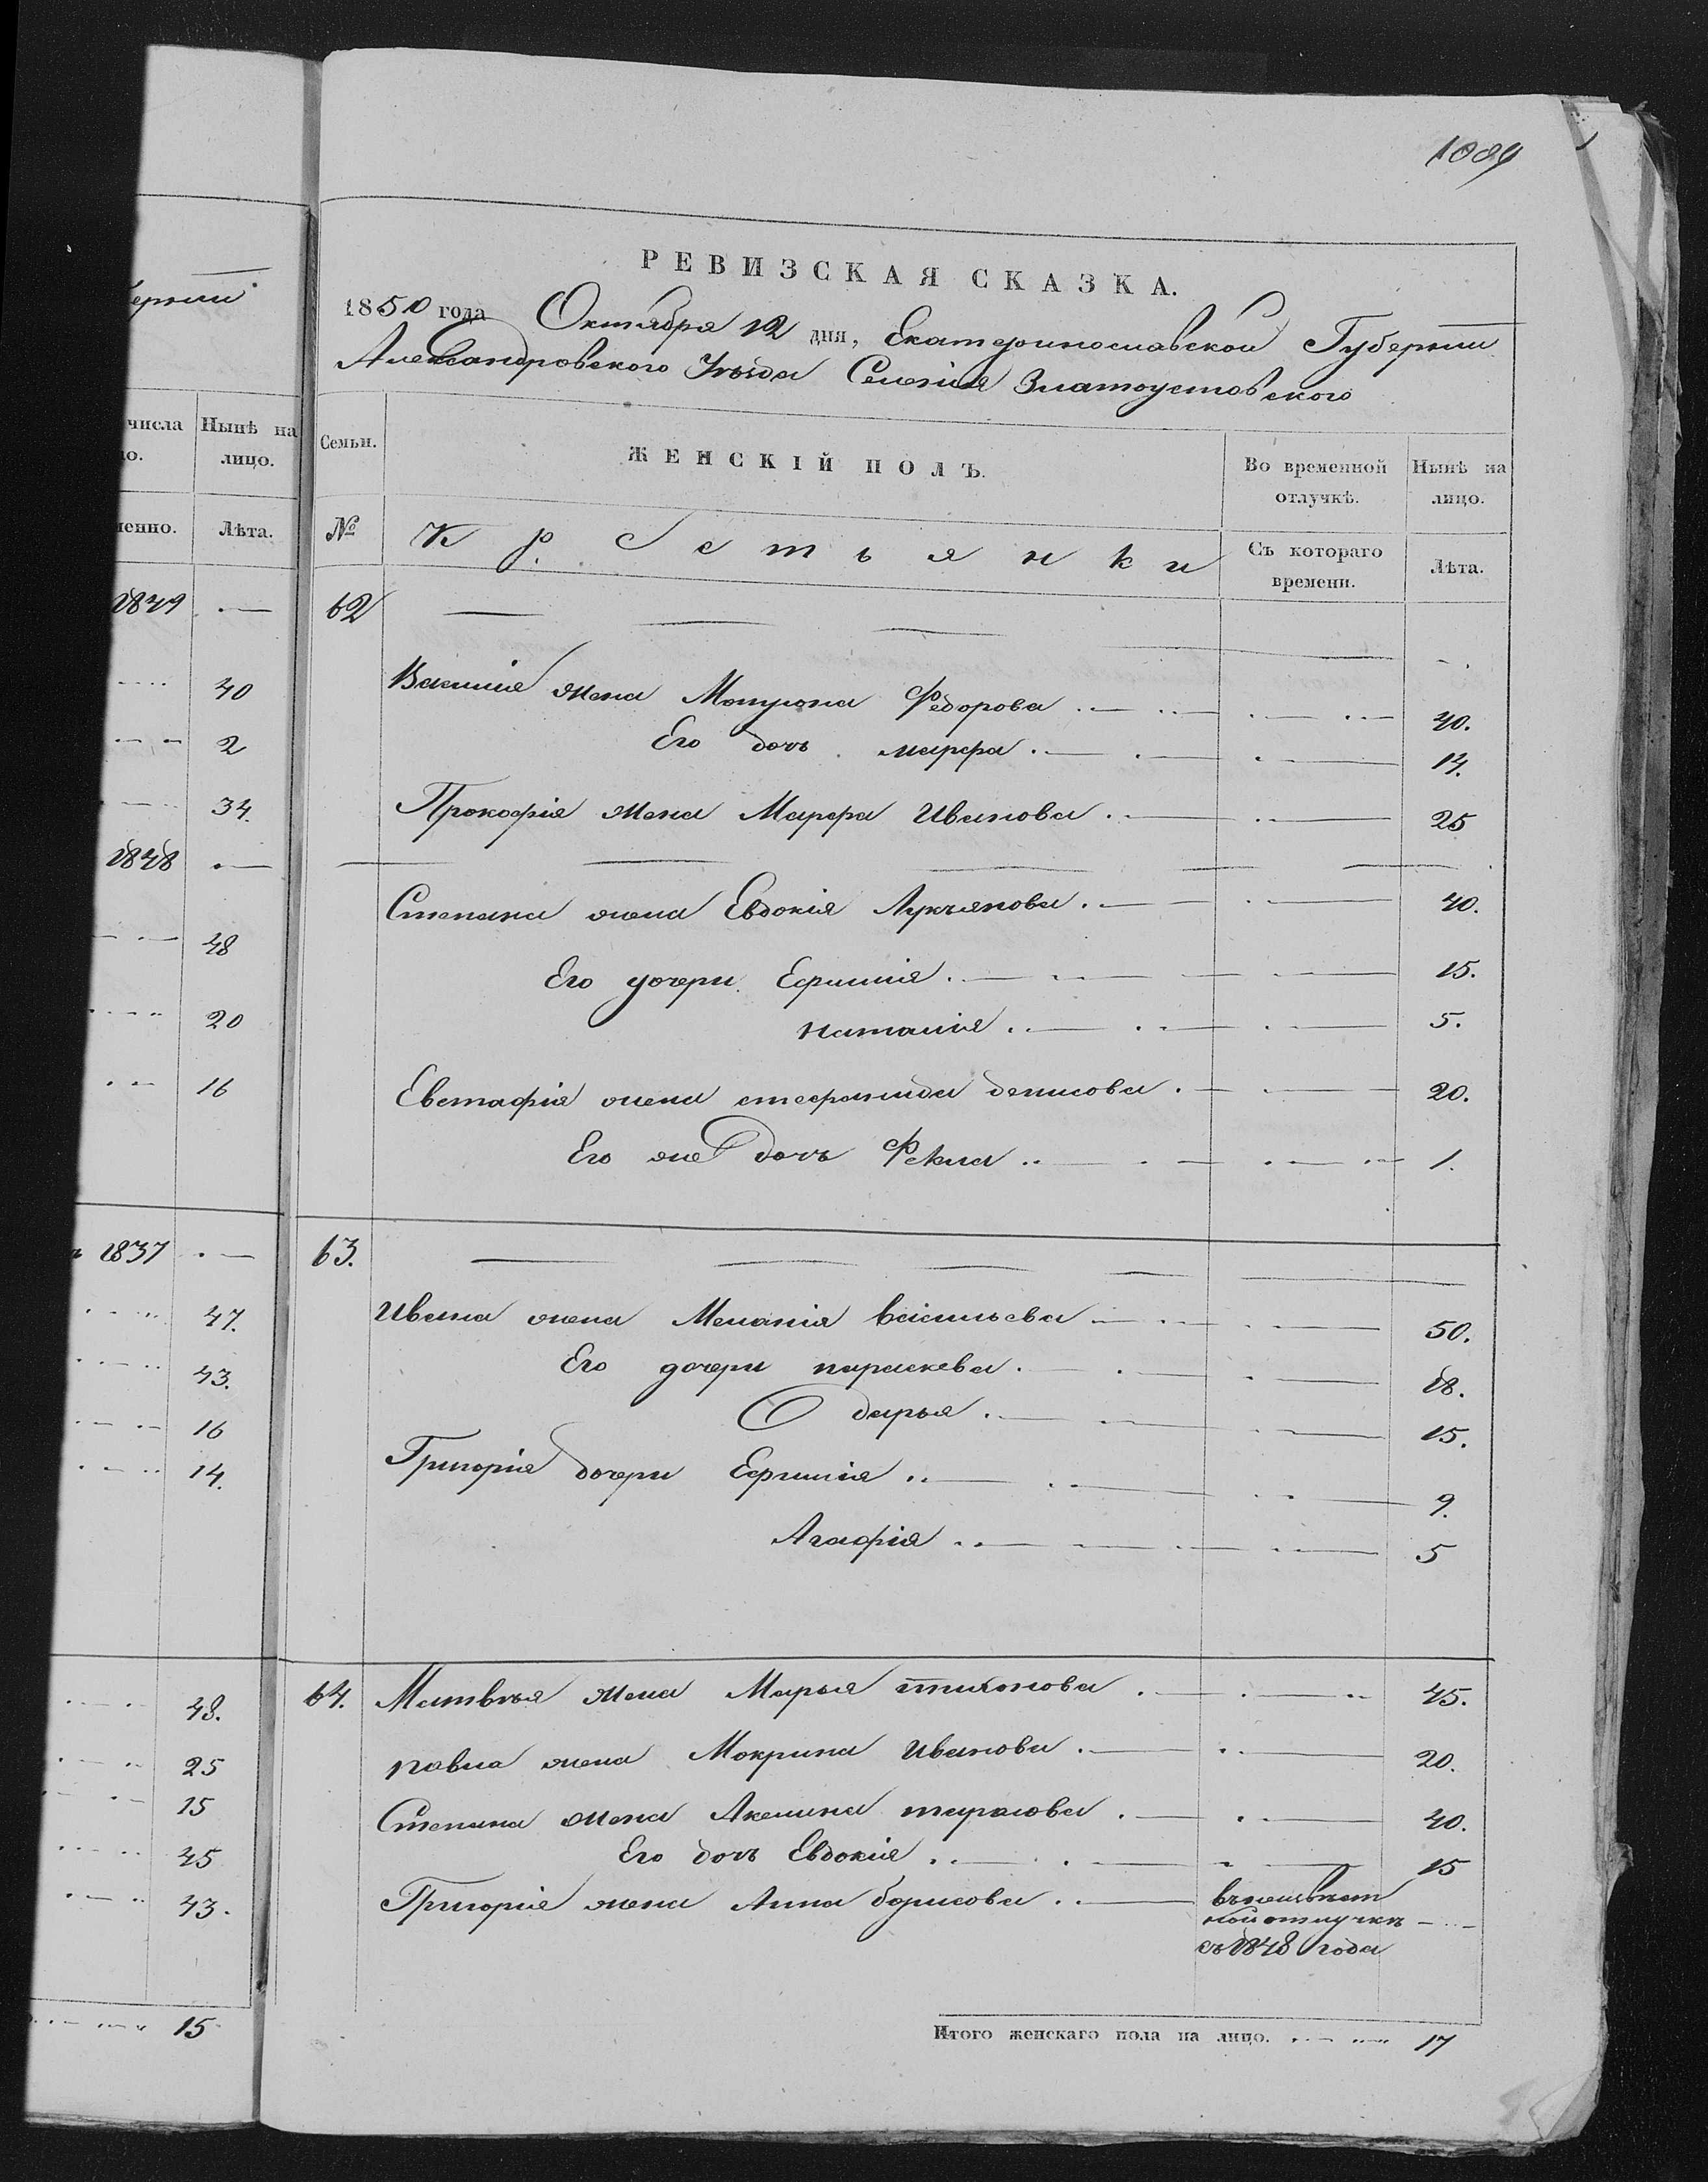 1089
РЕВИЗСКАЯ СКАЗКА.
1850 года Октября 12 дня, Екатеринославской Губернии
Александровского Уѣзда Селенія Златоустовского
числа Нынѣ на лицо.
Лѣта.
1849 . —
40
2
34.
1848 . —
48
20
16
1837 . —
47.
43.
16
14.
48.
25
15
45
43.
15
Семьи. ЖЕНСКІЙ ПОЛЪ. Во временной отлучкѣ. Нынѣ на лицо.
№ Крестьянки Съ котораго времени. Лѣта.
62 — — — —
Василія жена Матрона Федорова 40.
Его дочь марфа 14.
Прокофія жена Марфа Иванова 25
Степана жена Евдокія Лукъянова 40.
Его дочери Ефимія 15.
наталія 5.
Евстафія жена стефанида денисова 20.
Его же дочь Фекла 1.
63. — — — —
Ивана жена Меланія васильева 50.
Его дочери параскева 18.
дарья 15.
Григорія дочери Ефимія 9.
Агафія 5
64. Матвѣя жена Марья тихонова 45.
павла жена Мокрина Иванова 20.
Степана жена Акелина тарасова 40.
Его дочь Евдокія 15
Григорія жена Анна борисова
отлучкѣ
съ 1848 года
Итого женскаго пола на лицо. 17